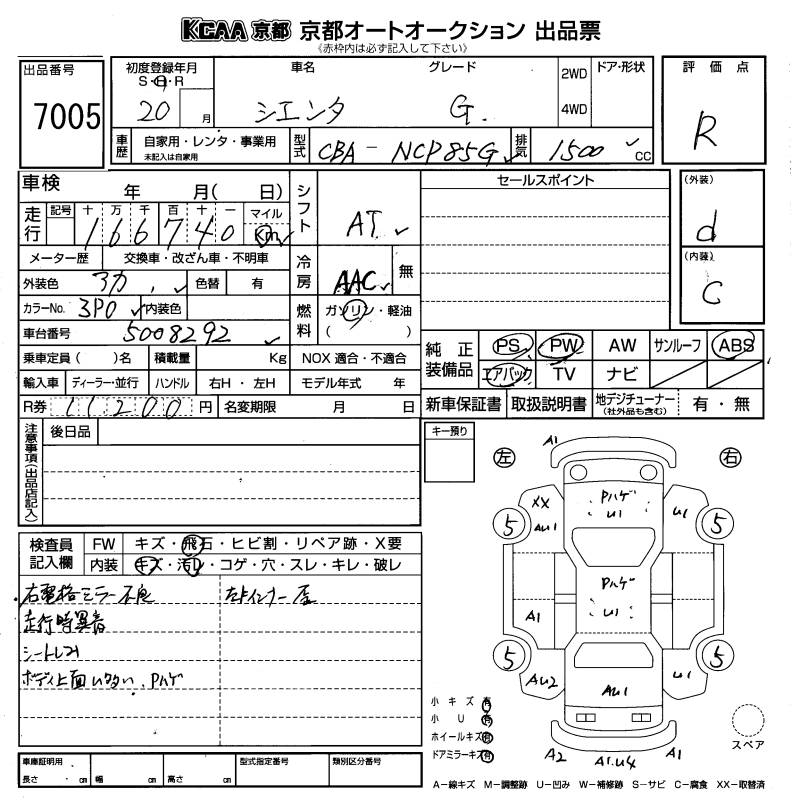 KCAA 京都 京都オートオークション 出品票
《赤枠内は必ず記入して下さい》
出品番号
7005
初度登録年月
S・H・R
20 月
車名
シエンタ
グレード
G.
2WD
4WD
ドア・形状
車歴
自家用・レンタ・事業用
未記入は自家用
型式
CBA-NCP85G
排気
1500 CC
評価点
R
車検 年 月( 日)
走行
記号 十 万 千 百 十 一 マイル
166740 Km
シフト
AT
メーター歴 交換車・改ざん車・不明車
冷房
AAC
無
外装色
色替 有
カラーNo. 3P0 内装色
燃料
ガソリン・軽油
( )
車台番号 5008292
乗車定員( )名 積載量 Kg NOX 適合・不適合
輸入車 ディーラー・並行 ハンドル 右H・左H モデル年式 年
R券 11200円 名変期限 月 日
セールスポイント
(外装)
d
(内装)
C
純正装備品
PS PW AW サンルーフ ABS
エアバック TV ナビ
新車保証書 取扱説明書 地デジチューナー
(社外品も含む)
有・無
注意事項(出品店記入)
後日品
キー預り
検査員記入欄
FW キズ・飛石・ヒビ割・リペア跡・X要
内装 キズ・汚レ・コゲ・穴・スレ・キレ・破レ
右電格ミラー不良
走行時異音
ボディ上面
Pハゲ
左 右
A1
XX
AU1
Pハゲ
U1
U1
5 5
Pハゲ
U1
A1
5 5
AU2
AU1
U1
A2
A1.U4
A1
小キズ 有
小U 有
ホイールキズ 有
ドアミラーキズ 有
スペア
車庫証明用
長さ . cm 幅 cm 高さ cm
型式指定番号
類別区分番号
A-線キズ M-調整跡 U-凹み W-補修跡 S-サビ C-腐食 XX-取替済